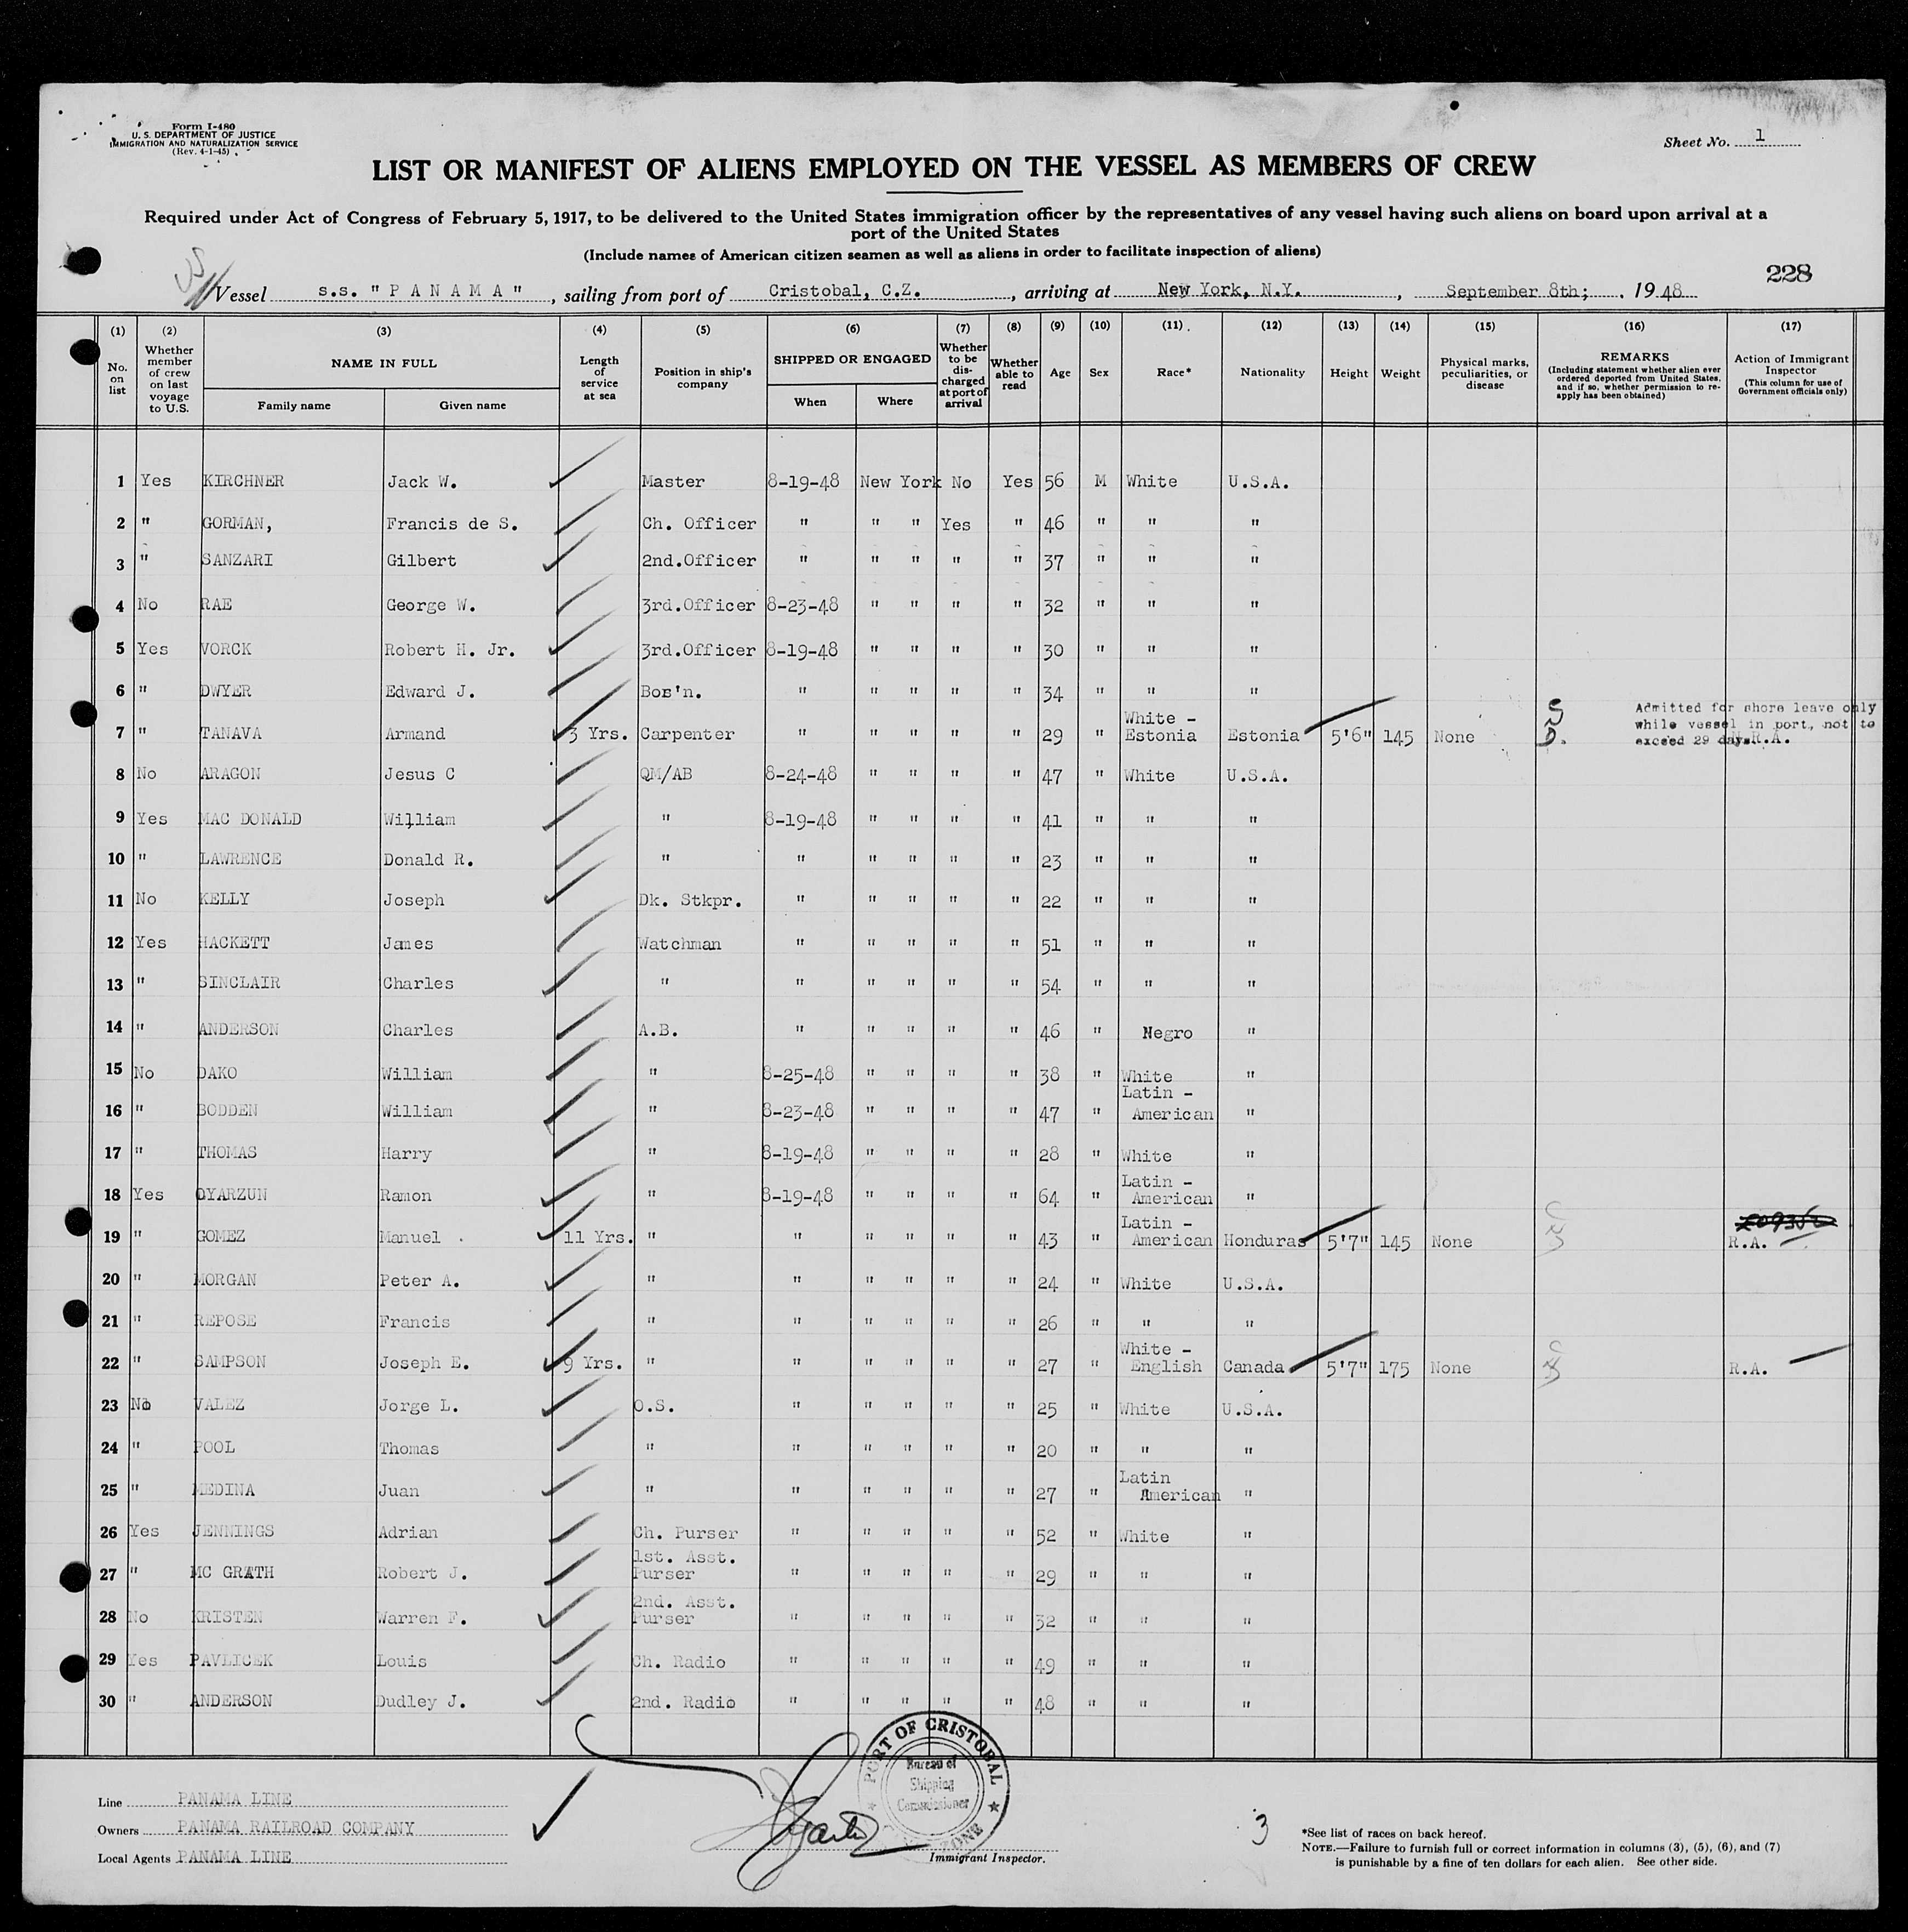 Form I-480
U. S. DEPARTMENT OF JUSTICE
IMMIGRATION AND NATURALIZATION SERVICE
(Rev. 4-1-45)
Sheet No. 1
LIST OR MANIFEST OF ALIENS EMPLOYED ON THE VESSEL AS MEMBERS OF CREW
Required under Act of Congress of February 5, 1917, to be delivered to the United States immigration officer by the representatives of any vessel having such aliens on board upon arrival at a
port of the United States
(Include names of American citizen seamen as well as aliens in order to facilitate inspection of aliens)
228
US
Vessel s.s. "P A N A M A", sailing from port of Cristobal, C.Z., arriving at New York, N.Y., September 8th;, 1948
(1) (2) (3) (4) (5) (6) (7) (8) (9) (10) (11) (12) (13) (14) (15) (16) (17)
No. on list
Whether member of crew on last voyage to U.S.
NAME IN FULL
Family name Given name
Length of service at sea
Position in ship's company
SHIPPED OR ENGAGED
When Where
Whether to be discharged at port of arrival
Whether able to read
Age Sex Race* Nationality Height Weight
Physical marks, peculiarities, or disease
REMARKS
(Including statement whether alien ever ordered deported from United States, and if so, whether permission to reapply has been obtained)
Action of Immigrant Inspector
(This column for use of Government officials only)
1 Yes KIRCHNER Jack W. Master 8-19-48 New York No Yes 56 M White U.S.A.
2 " GORMAN, Francis de S. Ch. Officer " " " Yes " 46 " " "
3 " SANZARI Gilbert 2nd.Officer " " " " " 37 " " "
4 No RAE George W. 3rd.Officer 8-23-48 " " " " 32 " " "
5 Yes VORCK Robert H. Jr. 3rd.Officer 8-19-48 " " " " 30 " " "
6 " DWYER Edward J. Bos'n. " " " " " 34 " " "
7 " TANAVA Armand 3 Yrs. Carpenter " " " " " 29 " White - Estonia Estonia 5'6" 145 None Admitted for shore leave only while vessel in port, not to exceed 29 days. R.A.
8 No ARAGON Jesus C QM/AB 8-24-48 " " " " 47 " White U.S.A.
9 Yes MAC DONALD William " 8-19-48 " " " " 41 " " "
10 " LAWRENCE Donald R. " " " " " " 23 " " "
11 No KELLY Joseph Dk. Stkpr. " " " " " 22 " " "
12 Yes HACKETT James Watchman " " " " " 51 " " "
13 " SINCLAIR Charles " " " " " " 54 " " "
14 " ANDERSON Charles A.B. " " " " " 46 " Negro "
15 No DAKO William " 8-25-48 " " " " 38 " White "
16 " BODDEN William " 8-23-48 " " " " 47 " Latin - American "
17 " THOMAS Harry " 8-19-48 " " " " 28 " White "
18 Yes OYARZUN Ramon " 8-19-48 " " " " 64 " Latin - American "
19 " GOMEZ Manuel 11 Yrs. " " " " " " 43 " Latin - American Honduras 5'7" 145 None R.A.
20 " MORGAN Peter A. " " " " " " 24 " White U.S.A.
21 " REPOSE Francis " " " " " " 26 " " "
22 " SAMPSON Joseph E. 9 Yrs. " " " " " " 27 " White - English Canada 5'7" 175 None R.A.
23 No VALEZ Jorge L. O.S. " " " " " 25 " White U.S.A.
24 " POOL Thomas " " " " " " 20 " " "
25 " MEDINA Juan " " " " " " 27 " Latin American "
26 Yes JENNINGS Adrian Ch. Purser " " " " " 52 " White "
27 " MC GRATH Robert J. 1st. Asst. Purser " " " " " 29 " " "
28 No KRISTEN Warren F. 2nd. Asst. Purser " " " " " 32 " " "
29 Yes PAVLICEK Louis Ch. Radio " " " " " 49 " " "
30 " ANDERSON Dudley J. 2nd. Radio " " " " " 48 " " "
PORT OF CRISTOBAL
Bureau of
Shipping
Commissioner
ZONE
Line PANAMA LINE
Owners PANAMA RAILROAD COMPANY
Local Agents PANAMA LINE
Immigrant Inspector.
3
*See list of races on back hereof.
NOTE.—Failure to furnish full or correct information in columns (3), (5), (6), and (7)
is punishable by a fine of ten dollars for each alien. See other side.